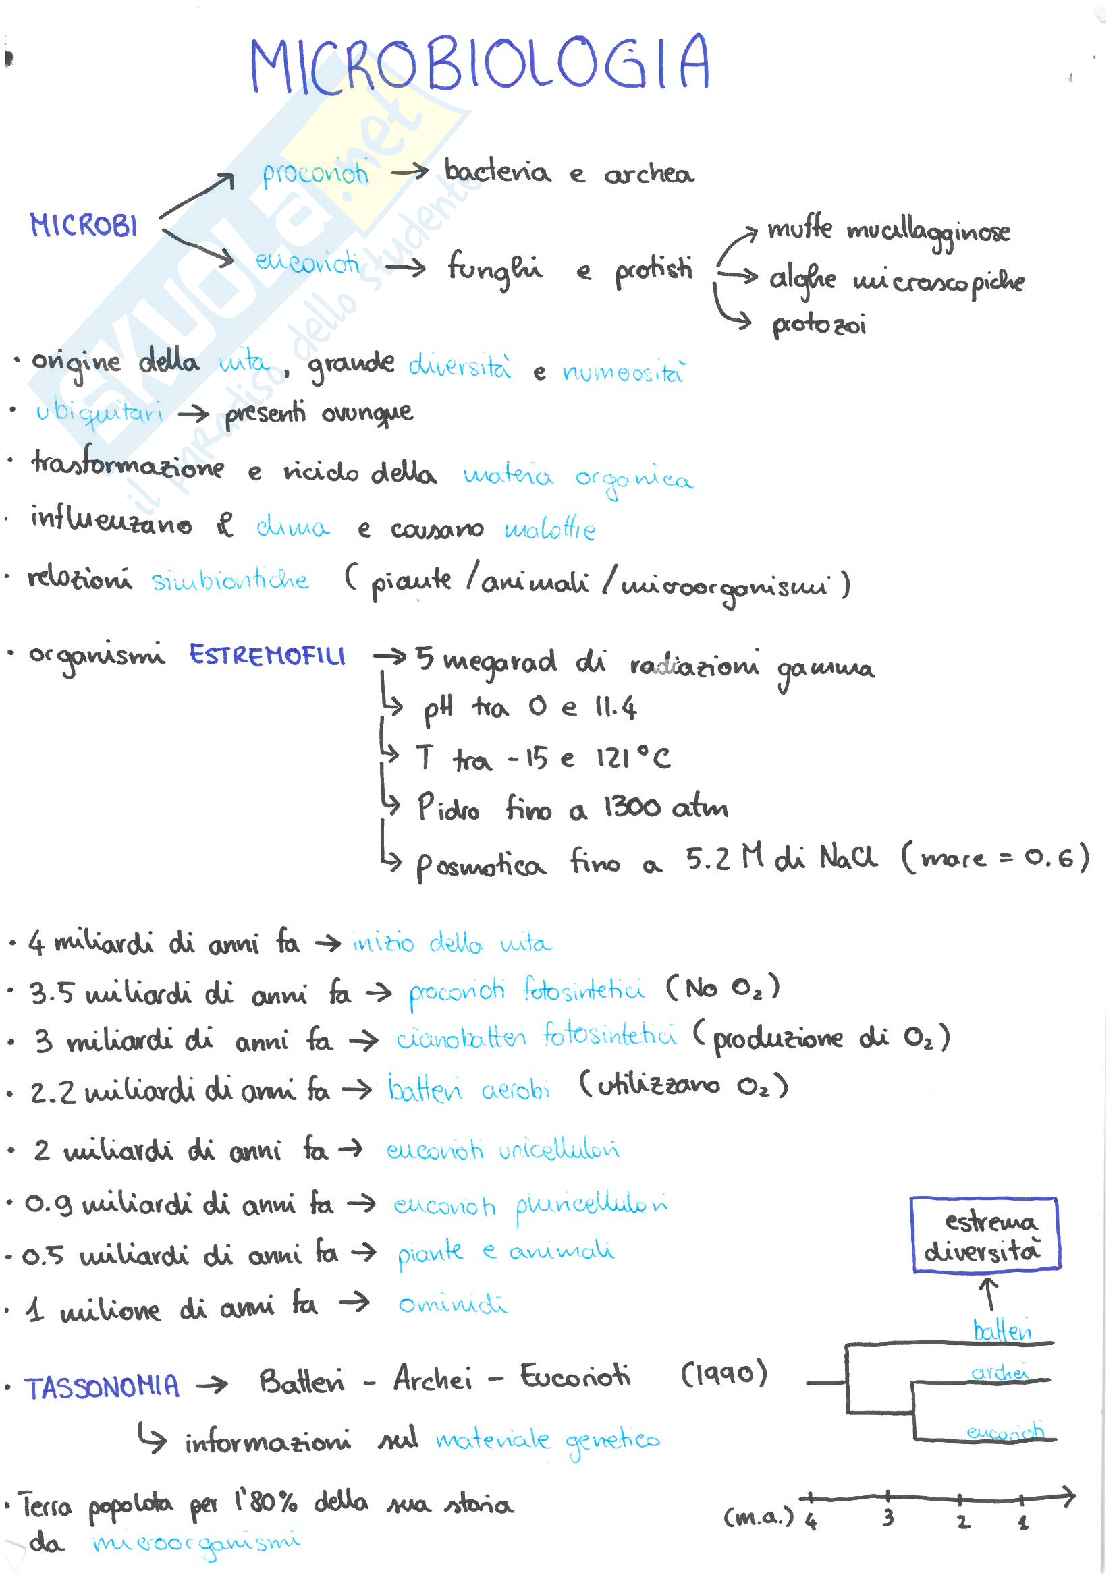 MICROBIOLOGIA
procarioti → bacteria e archea
MICROBI
eucarioti → funghi e protisti
muffe mucillagginose
alghe microscopiche
protozoi
• origine della vita, grande diversità e numeosità
• ubiquitari → presenti ovunque
• trasformazione e riciclo della materia organica
• influenzano il clima e causano malattie
• relazioni simbiontiche (piante/animali/microorganismi)
• organismi ESTREMOFILI → 5 megarad di radiazioni gamma
↳ pH tra 0 e 11.4
↳ T tra -15 e 121°C
↳ Pidro fino a 1300 atm
↳ Posmotica fino a 5.2 M di NaCl (mare = 0.6)
• 4 miliardi di anni fa → inizio della vita
• 3.5 miliardi di anni fa → procarioti fotosintetici (No O₂)
• 3 miliardi di anni fa → cianobatteri fotosintetici (produzione di O₂)
• 2.2 miliardi di anni fa → batteri aerobi (utilizzano O₂)
• 2 miliardi di anni fa → eucarioti unicellulari
• 0.9 miliardi di anni fa → eucarioti pluricellulari
- 0.5 miliardi di anni fa → piante e animali
• 1 milione di anni fa → ominidi
estrema
diversità
batteri
archei
eucarioti
• TASSONOMIA → Batteri - Archei - Eucarioti (1990)
↳ informazioni sul materiale genetico
• Terra popolata per l'80% della sua storia
da microorganismi
(m.a.) 4 3 2 1
SKUOLA.net
il paradiso dello studente